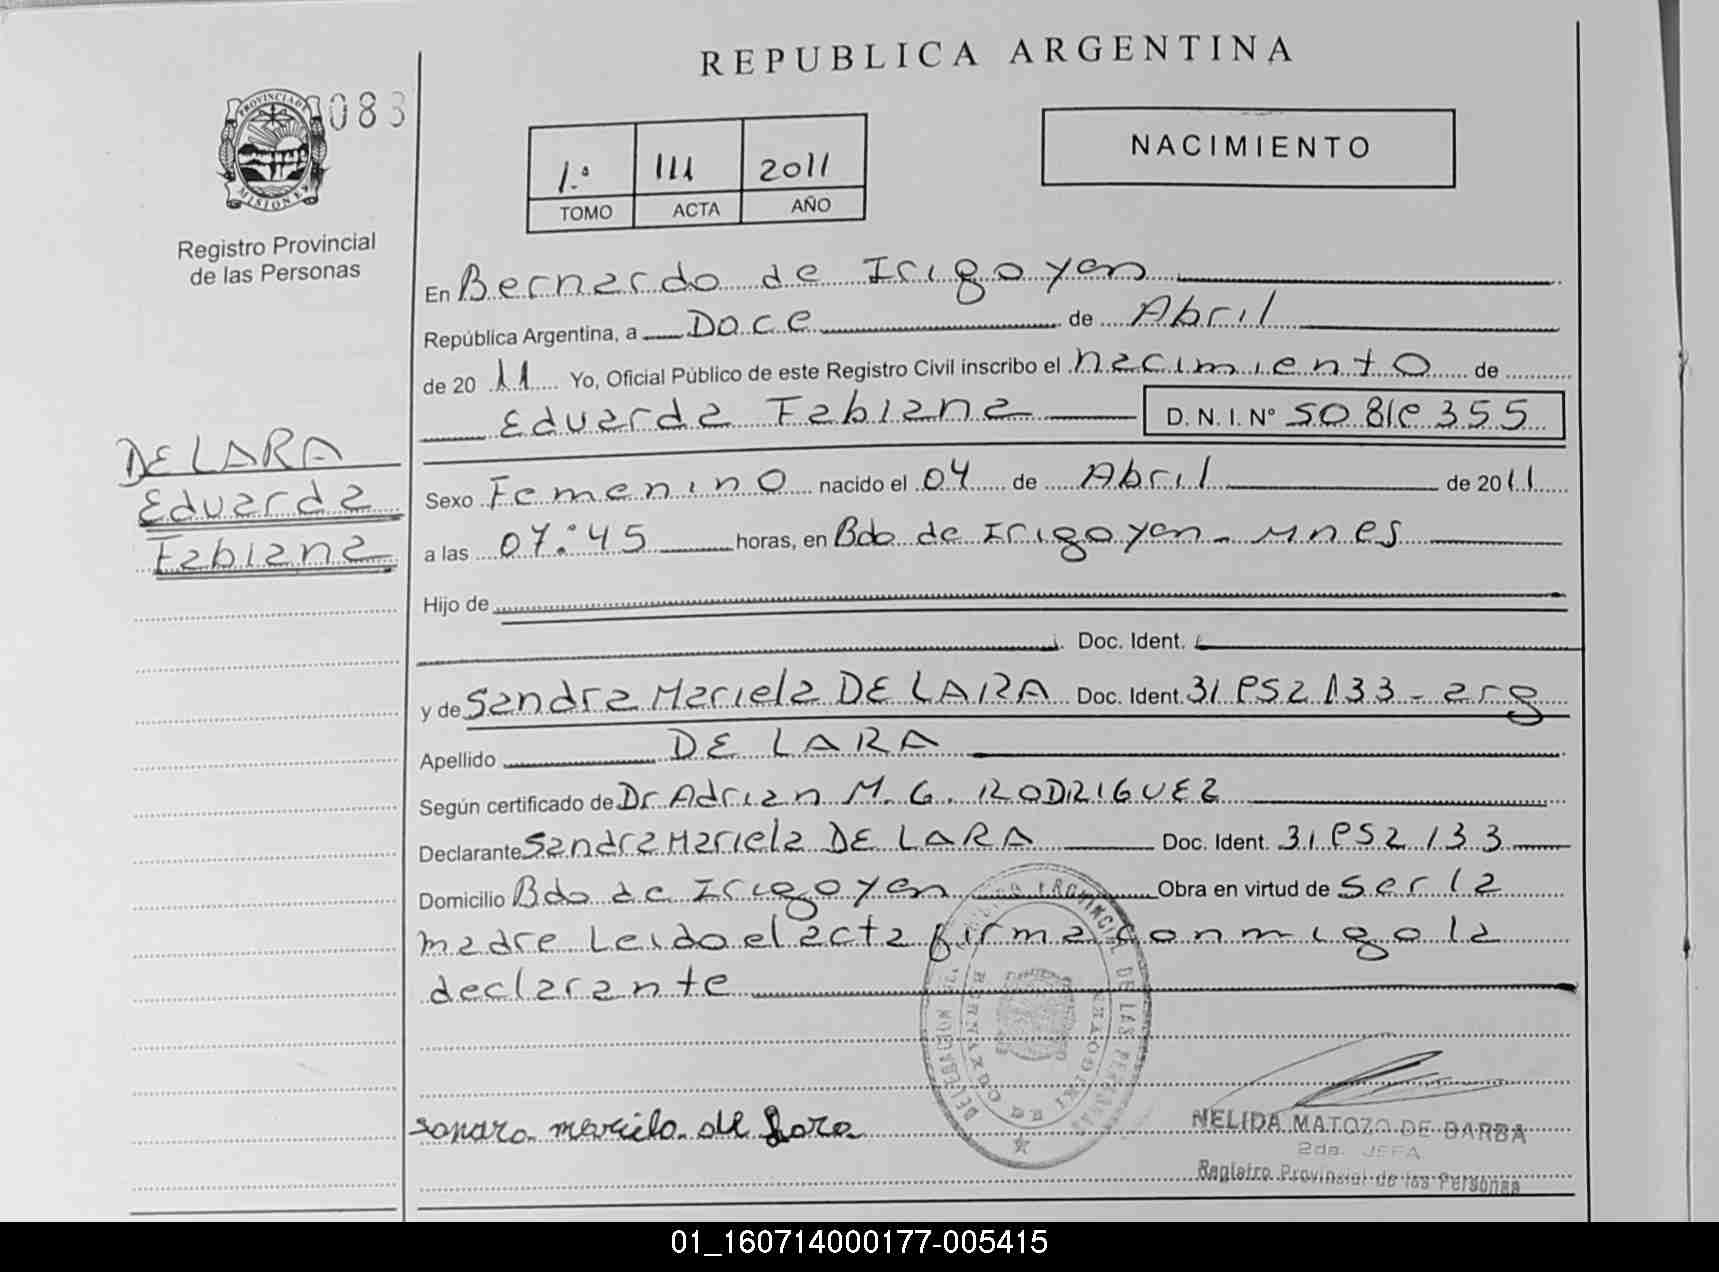 REPUBLICA ARGENTINA
083
PROVINCIA DE MISIONES
Registro Provincial
de las Personas
1.ª 111 2011
TOMO ACTA AÑO
NACIMIENTO
En Bernardo de Irigoyen
República Argentina, a Doce de Abril
de 2011 Yo, Oficial Público de este Registro Civil inscribo el nacimiento de
Eduarda Fabiana D. N. I. Nº
DE LARA
Eduarda
Fabiana
Sexo Femenino nacido el 04 de Abril de 2011
a las 07:45 horas, en Bdo de Irigoyen - Mnes
Hijo de
Doc. Ident.
y de Sandra Mariela DE LARA Doc. Ident. arg
Apellido DE LARA
Según certificado de Dr Adrian M. G. RODRIGUEZ
Declarante Sandra Mariela DE LARA Doc. Ident.
Domicilio Bdo de Irigoyen Obra en virtud de ser la
madre Leido el acta firma conmigo la
declarante
sandra mariela de Lara
NELIDA MATOZO DE BARBA
2da. JEFA
Registro Provincial de las Personas
01_160714000177-005415